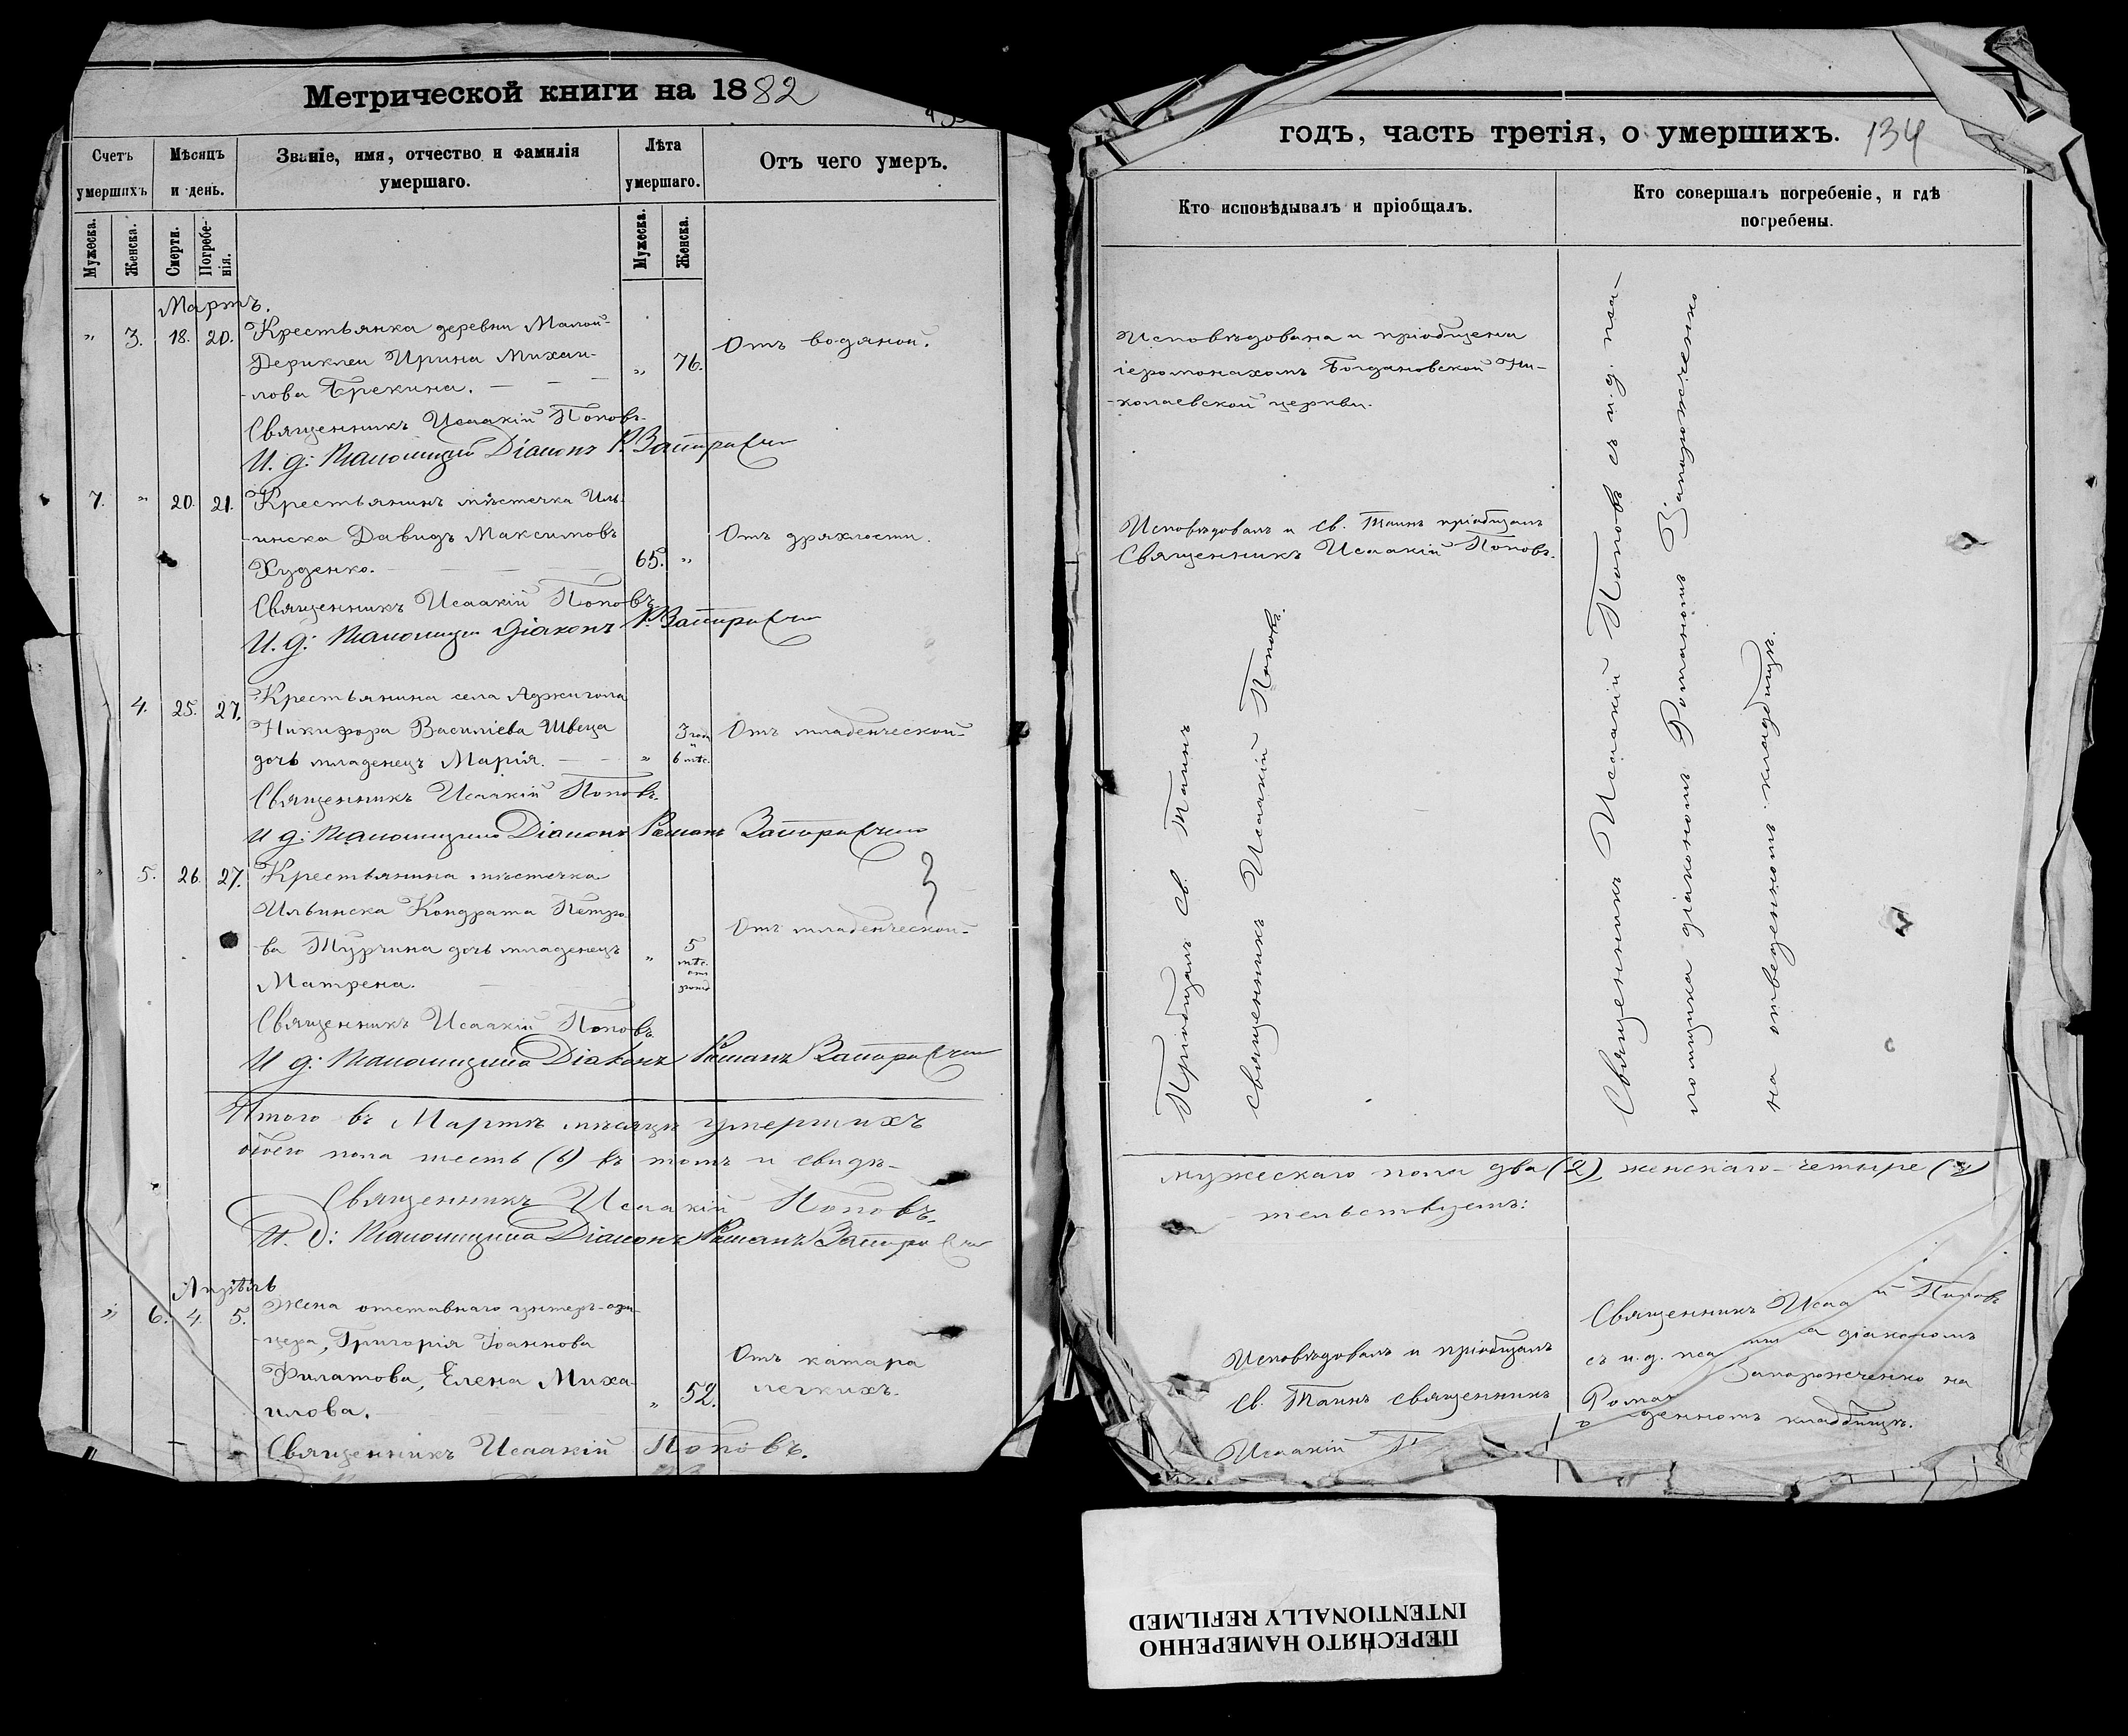 Метрической книги на 1882
Счетъ умершихъ
Мѣсяцъ и день.
Званіе, имя, отчество и фамилія умершаго.
Лѣта умершаго.
Отъ чего умеръ.
Мужеска.
Женска.
Смерти.
Погребенія.
Мужеска.
Женска.
Мартъ.
" 3. 18. 20. Крестьянка деревни Малой
Дериклеи Ирина Михаи-
лова Брекина. " 76. Отъ водяной.
Священникъ Исаакій Поповъ
И. д: псаломщика Діаконъ Р. Запорожченко
7. " 20. 21. Крестьянинъ мѣстечка Иль-
инска Давидъ Максимовъ
Худенко. 65. " Отъ дряхлости.
Священникъ Исаакій Поповъ
И. д: псаломщика Діаконъ Р. Запорожченко
4. 25. 27. Крестьянина села Аджигола
Никифора Василіева Швеца
дочь младенецъ Марія. " 3 года и 6 мѣс. Отъ младенческой
Священникъ Исаакій Поповъ.
И д: псаломщика Діаконъ Романъ Запорожченко
" 5. 26. 27. Крестьянина мѣстечка
Ильинска Кондрата Петро-
ва Турчина дочь младенецъ
Матрена. " 5 мѣс. отъ рожд. Отъ младенческой
Священникъ Исаакій Поповъ.
И д: псаломщика Діаконъ Романъ Запорожченко
Итого въ Мартѣ мѣсяцѣ умершихъ
обоего пола шесть (6) въ томъ и свидѣ-
Священникъ Исаакій Поповъ.
И. д: псаломщика Діаконъ Романъ Запорожченко
Апрѣль
" 6. 4. 5. Жена отставнаго унтеръ-офи-
цера, Григорія Іоаннова
Филатова, Елена Миха-
илова. " 52. Отъ катара
легкихъ.
Священникъ Исаакій Поповъ.
годъ, часть третія, о умершихъ. 134
Кто исповѣдывалъ и пріобщалъ.
Кто совершалъ погребеніе, и гдѣ
погребены.
Исповѣдована и пріобщена
іеромонахомъ Богдановской Ни-
колаевской церкви.
Исповѣдовалъ и св. Таинъ пріобщалъ
Священникъ Исаакій Поповъ.
Пріобщалъ св. Таинъ
священникъ Исаакій Поповъ.
Священникъ Исаакій Поповъ съ и. д. пса-
ломщика діакономъ Романомъ Запорожченко
на отведенномъ кладбищѣ.
мужескаго пола два (2) женскаго четыре (4)
тельствуемъ:
Исповѣдовалъ и пріобщалъ
св. Таинъ священникъ
Исаакій
Священникъ Исаа й Поповъ
съ и. д. пса а діакономъ
Рома Запорожченко на
денномъ кладбищѣ.
ПЕРЕСНЯТО НАМЕРЕННО
INTENTIONALLY REFILMED